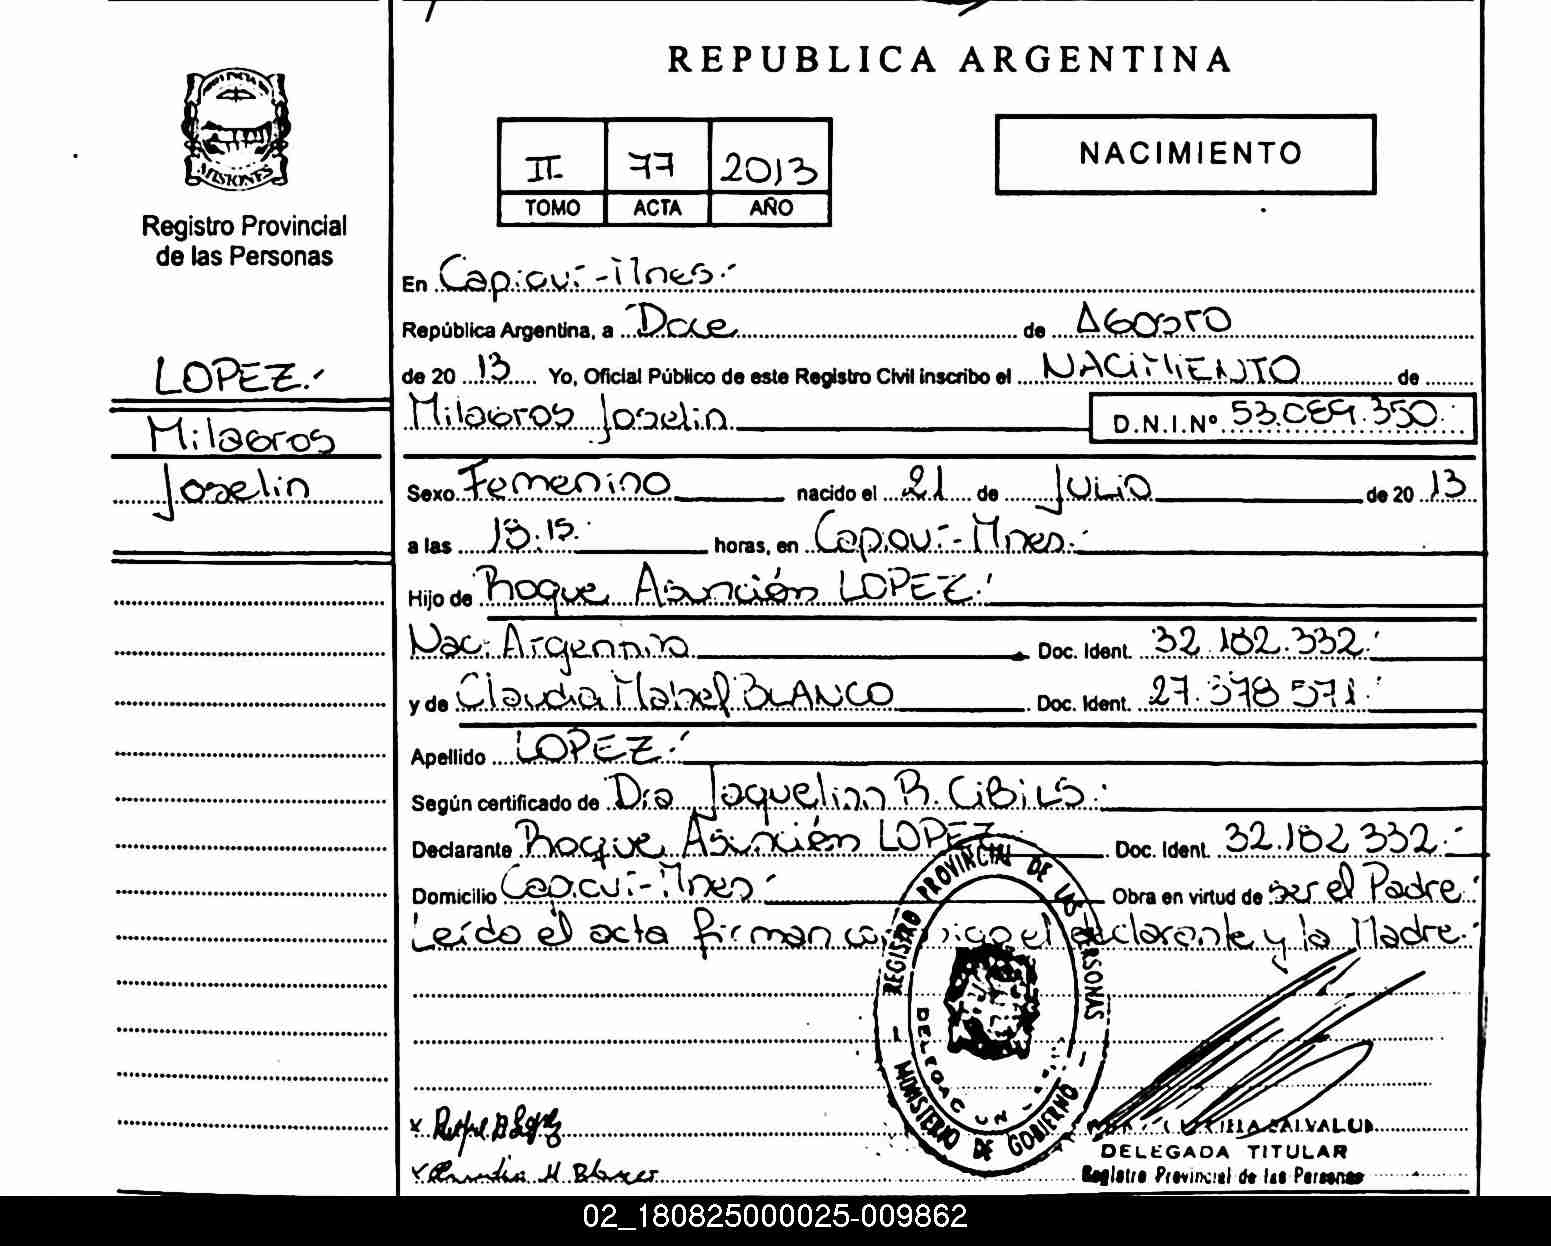 REPUBLICA ARGENTINA
MISIONES
Registro Provincial
de las Personas
II 77 2013
TOMO ACTA AÑO
NACIMIENTO
LOPEZ.-
Milagros
Joselin
En Capioví-Mnes.-
República Argentina, a Doce de AGOSTO
de 20 13 Yo, Oficial Público de este Registro Civil inscribo el NACIMIENTO de
Milagros Joselin D.N.I.Nº 53.089.350.
Sexo Femenino nacido el 21 de JULIO de 20 13
a las horas, en Capioví-Mnes.-
Hijo de Roque Asunción LOPEZ.-
Nac. Argentina Doc. Ident. 32.182.332.-
y de Claudia Mabel BLANCO Doc. Ident. 27.378 571.-
Apellido LOPEZ.-
Según certificado de Dra Jaquelinn R. CiBiLS.-
Declarante Roque Asunción LOPEZ Doc. Ident. 32.182 332.-
Domicilio Capioví-Mnes.- Obra en virtud de ser el Padre.-
Leído el acta firman conmigo el declarante y la Madre.-
REGISTRO PROVINCIAL DE LAS PERSONAS
MINISTERIO DE GOBIERNO
x Roque A Lopez
x Claudia M Blanco
DELEGADA TITULAR
Registro Provincial de las Personas
02_180825000025-009862